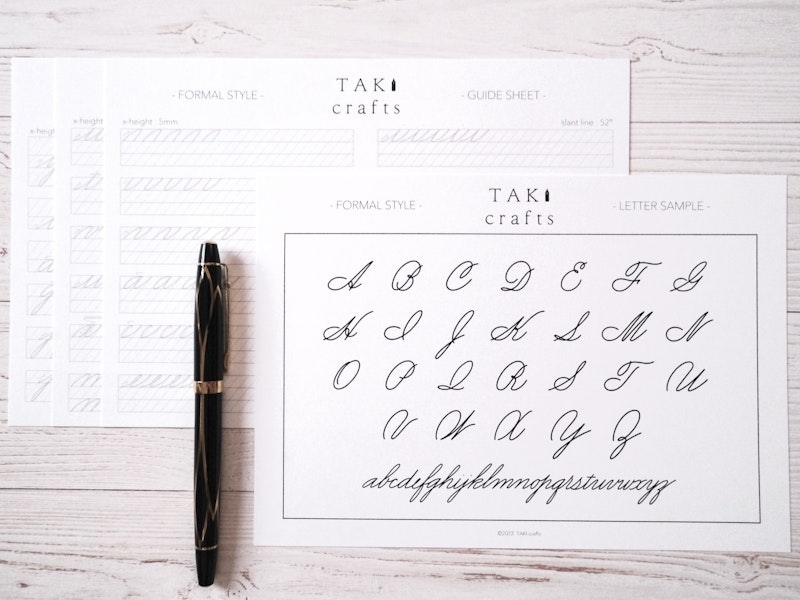 TAKI
crafts
- FORMAL STYLE -
- GUIDE SHEET -
x-height
x-height
x-height : 5mm
slant line : 52°
TAKI
crafts
- FORMAL STYLE -
- LETTER SAMPLE -
A B C D E F G
H I J K L M N
O P Q R S T U
V W X Y Z
abcdefghijklmnopqrstuvwxyz
©2022 TAKI crafts